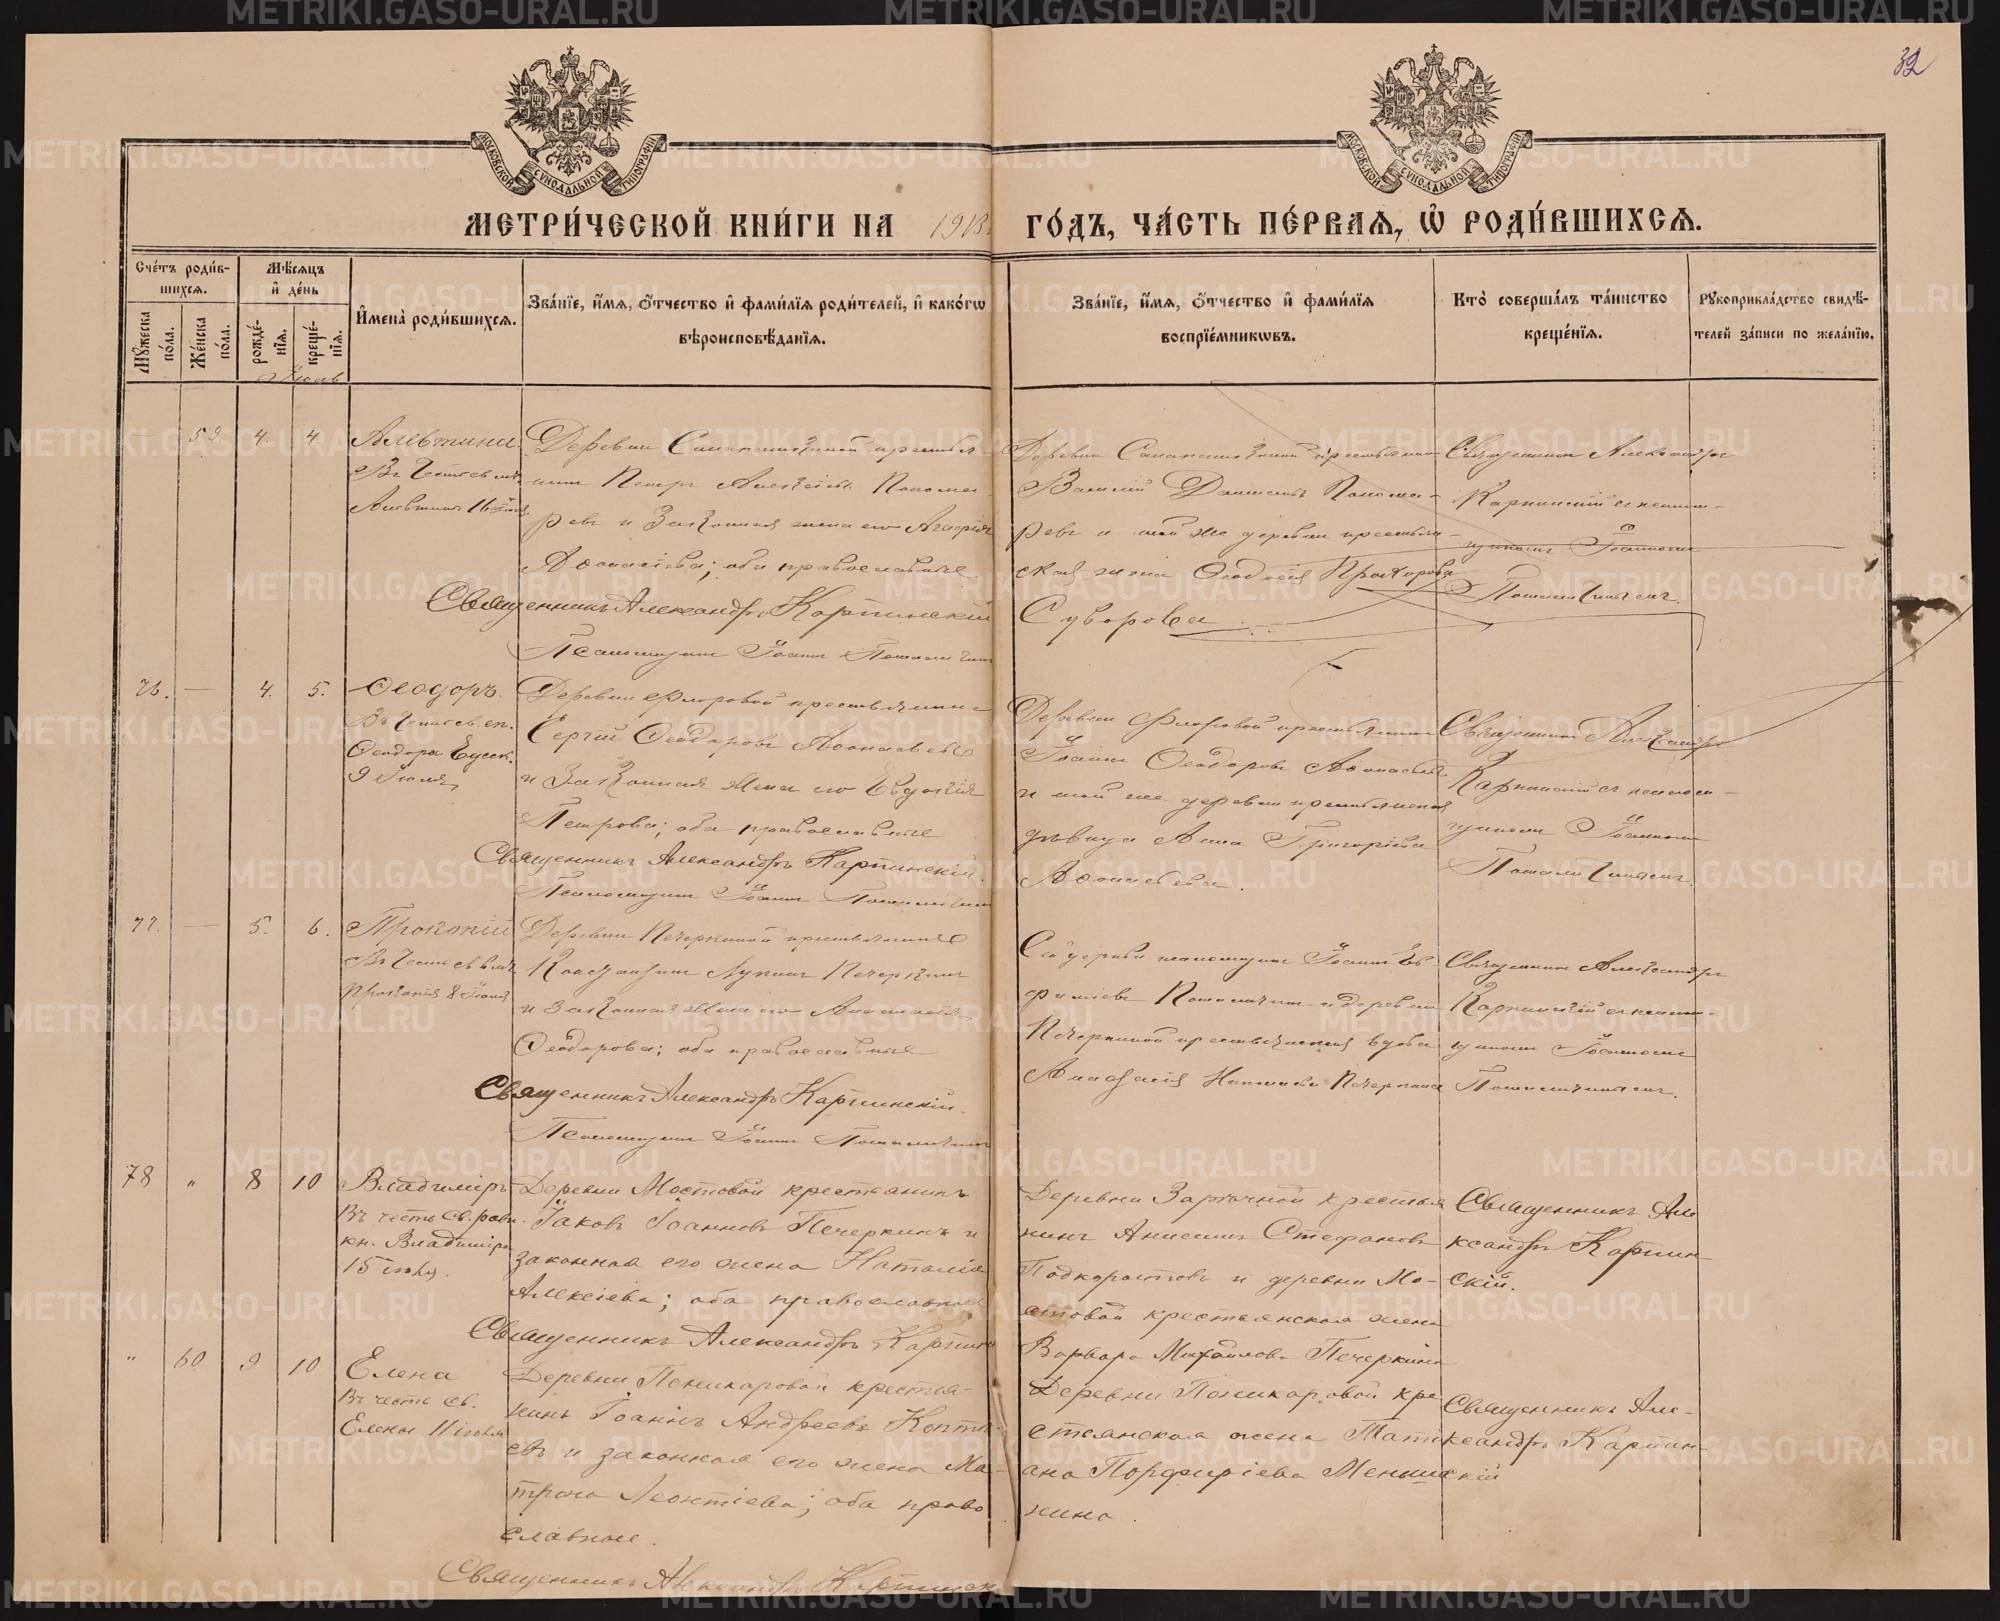 32
МОСКОВСКОЙ СѴНОДАЛЬНОЙ ТИПОГРАФІИ
МОСКОВСКОЙ СѴНОДАЛЬНОЙ ТИПОГРАФІИ
МЕТРИ́ЧЕСКОЙ КНИ́ГИ НА 1913 ГО́ДЪ, ЧА́СТЬ ПЕ́РВАЯ, Ѡ РОДИ́ВШИХСЯ.
Сче́тъ роди́в-
шихся.
Мѣ́сяцъ
и де́нь
Мꙋ́жеска по́ла.
Же́нска по́ла.
рожде́-
нїя.
креще́-
нїя.
Имена̀ роди́вшихся.
Зва́нїе, и́мя, ѻ́тчество и фами́лїя роди́телей, и како́гѡ
вѣроисповѣ́данїя.
Зва́нїе, и́мя, ѻ́тчество и фами́лїя
воспрїе́мникѡвъ.
Кто̀ соверша́лъ та́инство
креще́нїя.
Рꙋкоприкла́дство свидѣ́-
телей за́писи по жела́нїю.
Іюль
59 4. 4.
Алевтина
Въ честь св. мч.
Алевтины 16 Іюля.
Деревни крестья
нинъ Петръ Алексіевъ Пономо
ревъ и законная жена его Агафія
Афонасіева; оба православные.
Священникъ Александръ Карпинскій
Псаломщикъ Іоаннъ
Деревни крестьянин
Василій Даниловъ Понома-
ревъ и той же деревни крестьян-
ская жена Ѳеодосія Прохорова
Суворова
Священникъ Александръ
Карпинскій съ псалом-
щикомъ Іоанномъ
76. — 4. 5.
Ѳеодоръ.
Въ честь св. еп.
Ѳеодора Едесск.
9 Іюля
Деревни Фирровой крестьянинъ
Сергій Ѳеодоровъ Афонасьевъ
и законная жена его Евдокія
Петрова; оба православные
Священникъ Александръ Карпинскій.
Псаломщикъ Іоаннъ
Деревни крестьянинъ
Іоаннъ Ѳеодоровъ Афонасьевъ
и той же деревни крестьянская
дѣвица Анна Григоріева
Афонасьева.
Священникъ Александръ
Карпинскій съ псалом-
щикомъ Іоанномъ
77. — 5. 6.
Прокопій
Въ честь св. вмч.
Прокопія 8 Іюля
Деревни Печеркиной крестьянинъ
Константинъ Лукинъ Печеркинъ
и законная жена его Анастасія
Ѳеодорова; оба православные
Священникъ Александръ Карпинскій.
Псаломщикъ Іоаннъ
Сей церкви псаломщикъ Іоаннъ Ев-
фиміевъ и деревни
Печеркиной крестьянская вдова
Анастасія Печеркина
Священникъ Александръ
Карпинскій съ псалом-
щикомъ Іоанномъ
78 „ 8 10
Владиміръ
Въ честь св. равн.
кн. Владиміра
15 іюля.
Деревни Мостовой крестьянинъ
Іаковъ Іоанновъ Печеркинъ и
законная его жена Наталія
Алексіева; оба православные
Священникъ Александръ Карпин
Деревни Заречной крестья
нинъ Анисимъ Стефановъ
Подкорытовъ и деревни Мо-
стовой крестьянская жена
Варвара Михайлова Печеркина
Священникъ Але
ксандръ Карпин-
скій.
„ 60 9 10
Елена
Въ честь св.
Елены 11 іюля
Деревни Поникаровой крестья-
нинъ Іоаннъ Андреевъ Копты-
евъ и законная его жена Ма-
трона Леонтіева; оба право
славные.
Священникъ Александръ Карпинск
Деревни Поникаровой кре
стьянская жена Тати
ана Порфиріева Меньша
нина.
Священникъ Але-
ксандръ Карпин-
скій